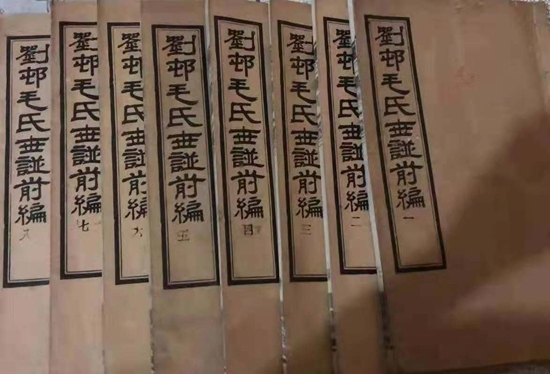 劉邨毛氏世譜前編 一
劉邨毛氏世譜前編 二
劉邨毛氏世譜前編 三
劉邨毛氏世譜前編 四
劉邨毛氏世譜前編 五
劉邨毛氏世譜前編 六
劉邨毛氏世譜前編 七
劉邨毛氏世譜前編 八